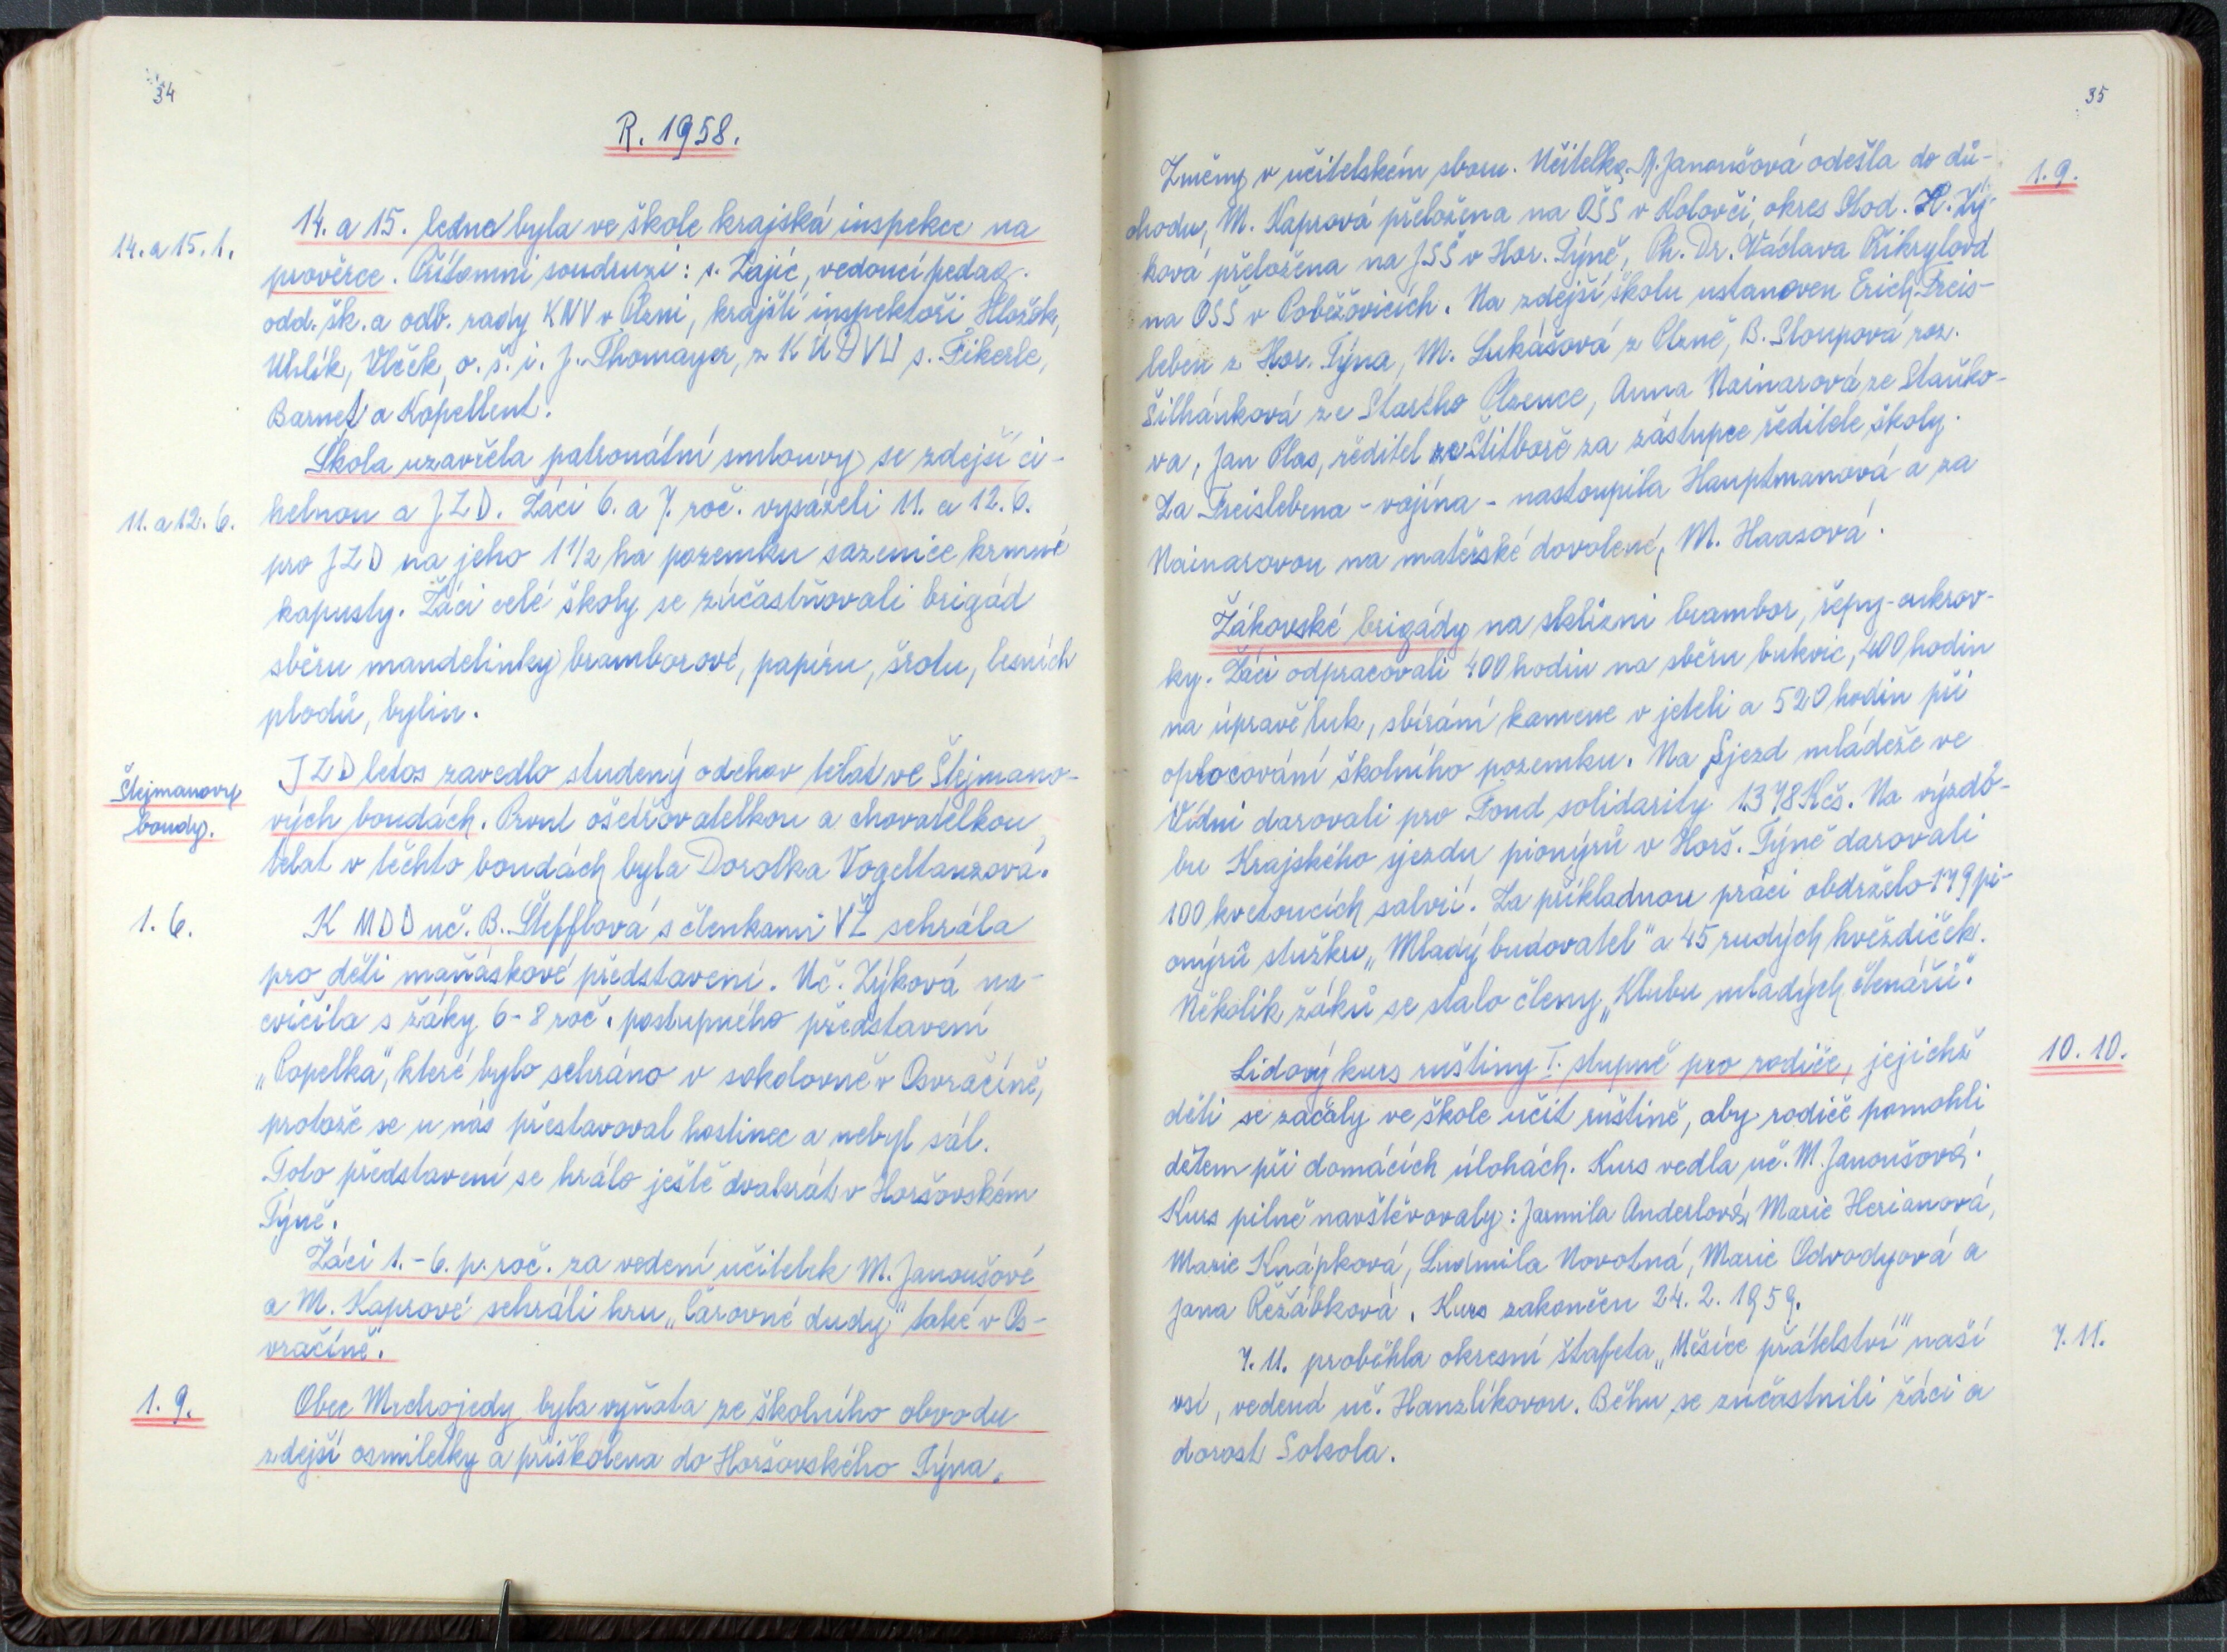 34
R. 1958.
14. a 15. 1.
14. a 15. ledna byla ve škole krajská inspekce na
prověrce. Přítomni soudruzi: s. Zajíc, vedoucí pedag.
odd. šk. a odb. rady KNV v Plzni, krajští inspektoři Hložek,
Uhlík, Vlček, o. š. i. J. Thomayer, z KÚDVU s. Fikerle,
Barnet a Kopellent.
Škola uzavřela patronátní smlouvy se zdejší ci-
11. a 12. 6.
helnou a JZD. Žáci 6. a 7. roč. vysázeli 11. a 12. 6.
pro JZD na jeho 1 1/2 ha pozemku sazenice krmné
kapusty. Žáci celé školy se zúčastňovali brigád
sběru mandelinky bramborové, papíru, šrotu, lesních
plodů, bylin.
Štejmanovy
boudy.
JZD letos zavedlo studený odchov telat ve Štejmano-
vých boudách. První ošetřovatelkou a chovatelkou
telat v těchto boudách byla Dorotka Vogeltanzová.
1. 6.
K MDD uč. B. Štefflová s členkami VŽ sehrála
pro děti maňáskové představení. Uč. Zýková na-
cvičila s žáky 6-8 roč. postupného představení
„Popelka", které bylo sehráno v sokolovně v Osvračíně,
protože se u nás přestavoval hostinec a nebyl sál.
Toto představení se hrálo ještě dvakrát v Horšovském
Týně.
Žáci 1.-6. p. roč. za vedení učitelek M. Janoušové
a M. Kaprové sehráli hru „Čarovné dudy" také v Os-
vračíně.
1. 9.
Obec Mrchojedy byla vyňata ze školního obvodu
zdejší osmiletky a přiškolena do Horšovského Týna.
35
1. 9.
Změny v učitelském sboru. Učitelka M. Janoušová odešla do dů-
chodu, M. Kaprová přeložena na OSŠ v Holovči, okres Stod. H. Zý-
ková přeložena na JSŠ v Hor. Týně, Ph. Dr. Václava Přikrylová
na OSŠ v Poběžovicích. Na zdejší školu ustanoven Erich Freis-
leben z Hor. Týna, M. Lukášová z Plzně, B. Sloupová roz.
Šilhánková ze Starého Plzence, Anna Nainarová ze Staňko-
va, Jan Plas, ředitel ze Štítboře za zástupce ředitele školy.
Za Freislebena - vojína - nastoupila Hauptmanová a za
Nainarovou na mateřské dovolené, M. Haasová.
Žákovské brigády na sklizni brambor, řepy-cukrov-
ky. Žáci odpracovali 400 hodin na sběru bukvic, 400 hodin
na úpravě luk, sbírání kamene v jeteli a 520 hodin při
oplocování školního pozemku. Na Sjezd mládeže ve
Vídni darovali pro Fond solidarity 1378 Kčs. Na výzdo-
bu Krajského sjezdu pionýrů v Horš. Týně darovali
100 kvetoucích salvií. Za příkladnou práci obdrželo 179 pi-
onýrů stužku „Mladý budovatel" a 45 rudých hvězdiček.
Několik žáků se stalo členy „Klubu mladých čtenářů".
10. 10.
Lidový kurs ruštiny I. stupně pro rodiče, jejichž
děti se začaly ve škole učit ruštině, aby rodiče pomohli
dětem při domácích úlohách. Kurs vedla uč. M. Janoušová.
Kurs pilně navštěvovaly: Jarmila Anderlová, Marie Herianová,
Marie Knápková, Ludmila Novotná, Marie Odvodyová a
Jana Řežábková. Kurs zakončen 24. 2. 1959.
7. 11.
7. 11. proběhla okresní štafeta „Měsíce přátelství" naší
vsí, vedená uč. Hanzlíkovou. Běhu se zúčastnili žáci a
dorost Sokola.